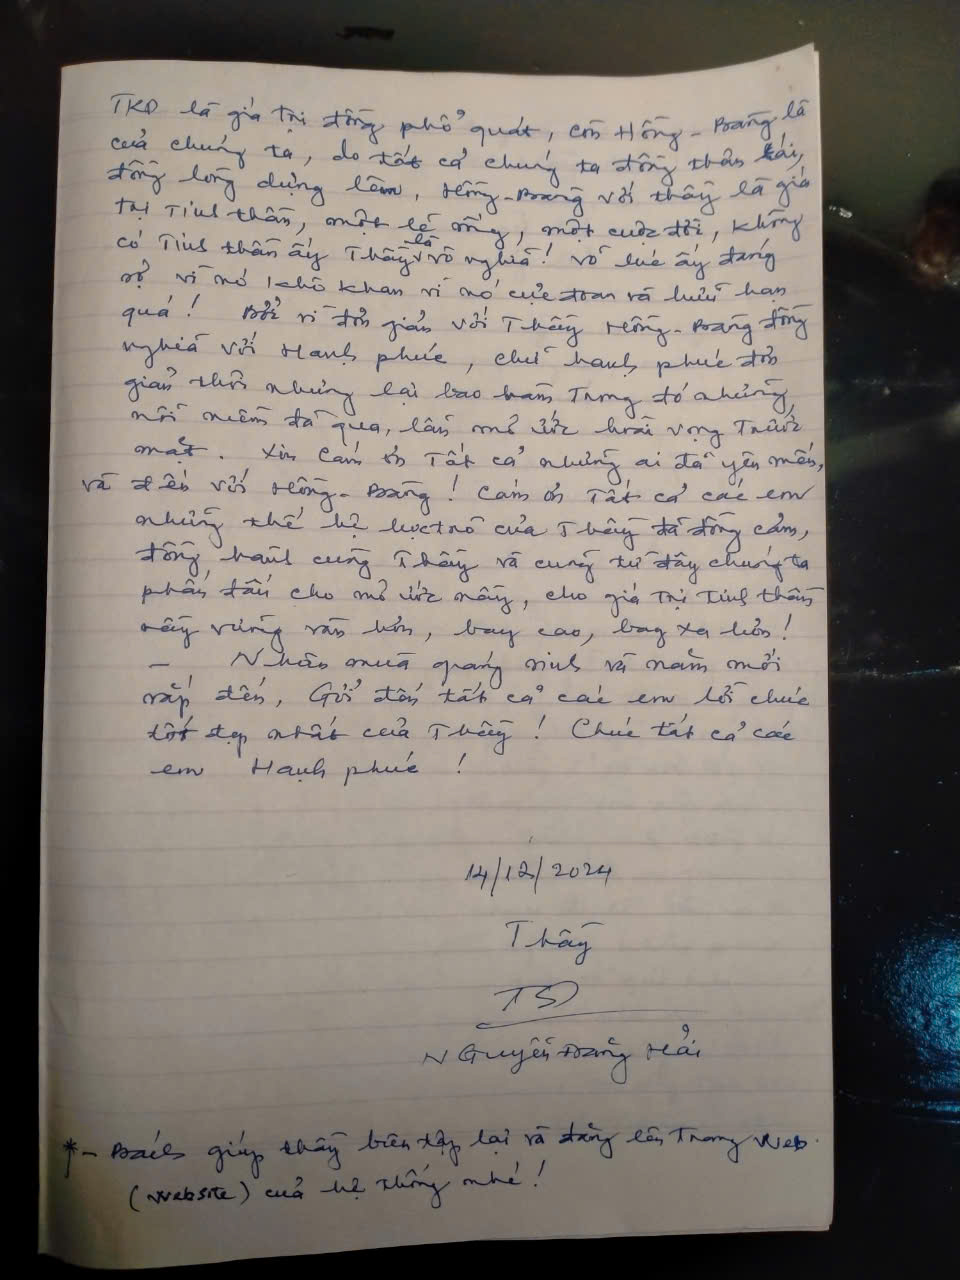 TKD là giá trị đồng phổ quát, còn Hồng-Bàng là
của chúng ta, do tất cả chúng ta đồng thân tái,
đồng lòng dựng lên, Hồng-Bàng với thầy là giá
trị Tinh thần, một lẽ sống, một cuộc đời, không
có Tinh thần ấy Thầy là vô nghĩa! võ lúc ấy đáng
sợ vì nó khô khan vì nó cực đoan và hữu hạn
quá! Bởi vì đơn giản với Thầy Hồng-Bàng đồng
nghĩa với Hạnh phúc, chữ hạnh phúc đơn
giản thôi nhưng lại bao hàm Trong đó những
nỗi niềm đã qua, lẫn mơ ước hoài vọng Trước
mặt. Xin Cám ơn Tất cả những ai đã yêu mến,
và đến với Hồng-Bàng! Cám ơn Tất cả các em
những thế hệ học trò của Thầy đã đồng cảm,
đồng hành cùng Thầy và cùng từ đây chúng ta
phấn đấu cho mơ ước nầy, cho giá Trị Tinh thần
nầy vững vàn hơn, bay cao, bay xa hơn!
- Nhân mùa giáng sinh và năm mới
sắp đến, Gởi đến tất cả các em lời chúc
tốt đẹp nhất của Thầy! Chúc tất cả các
em Hạnh phúc!
14/12/2024
Thầy
Nguyễn Đăng Hải
*- Bách giúp thầy biên tập lại và đăng lên Trang Web
(Website) của hệ thống nhé!